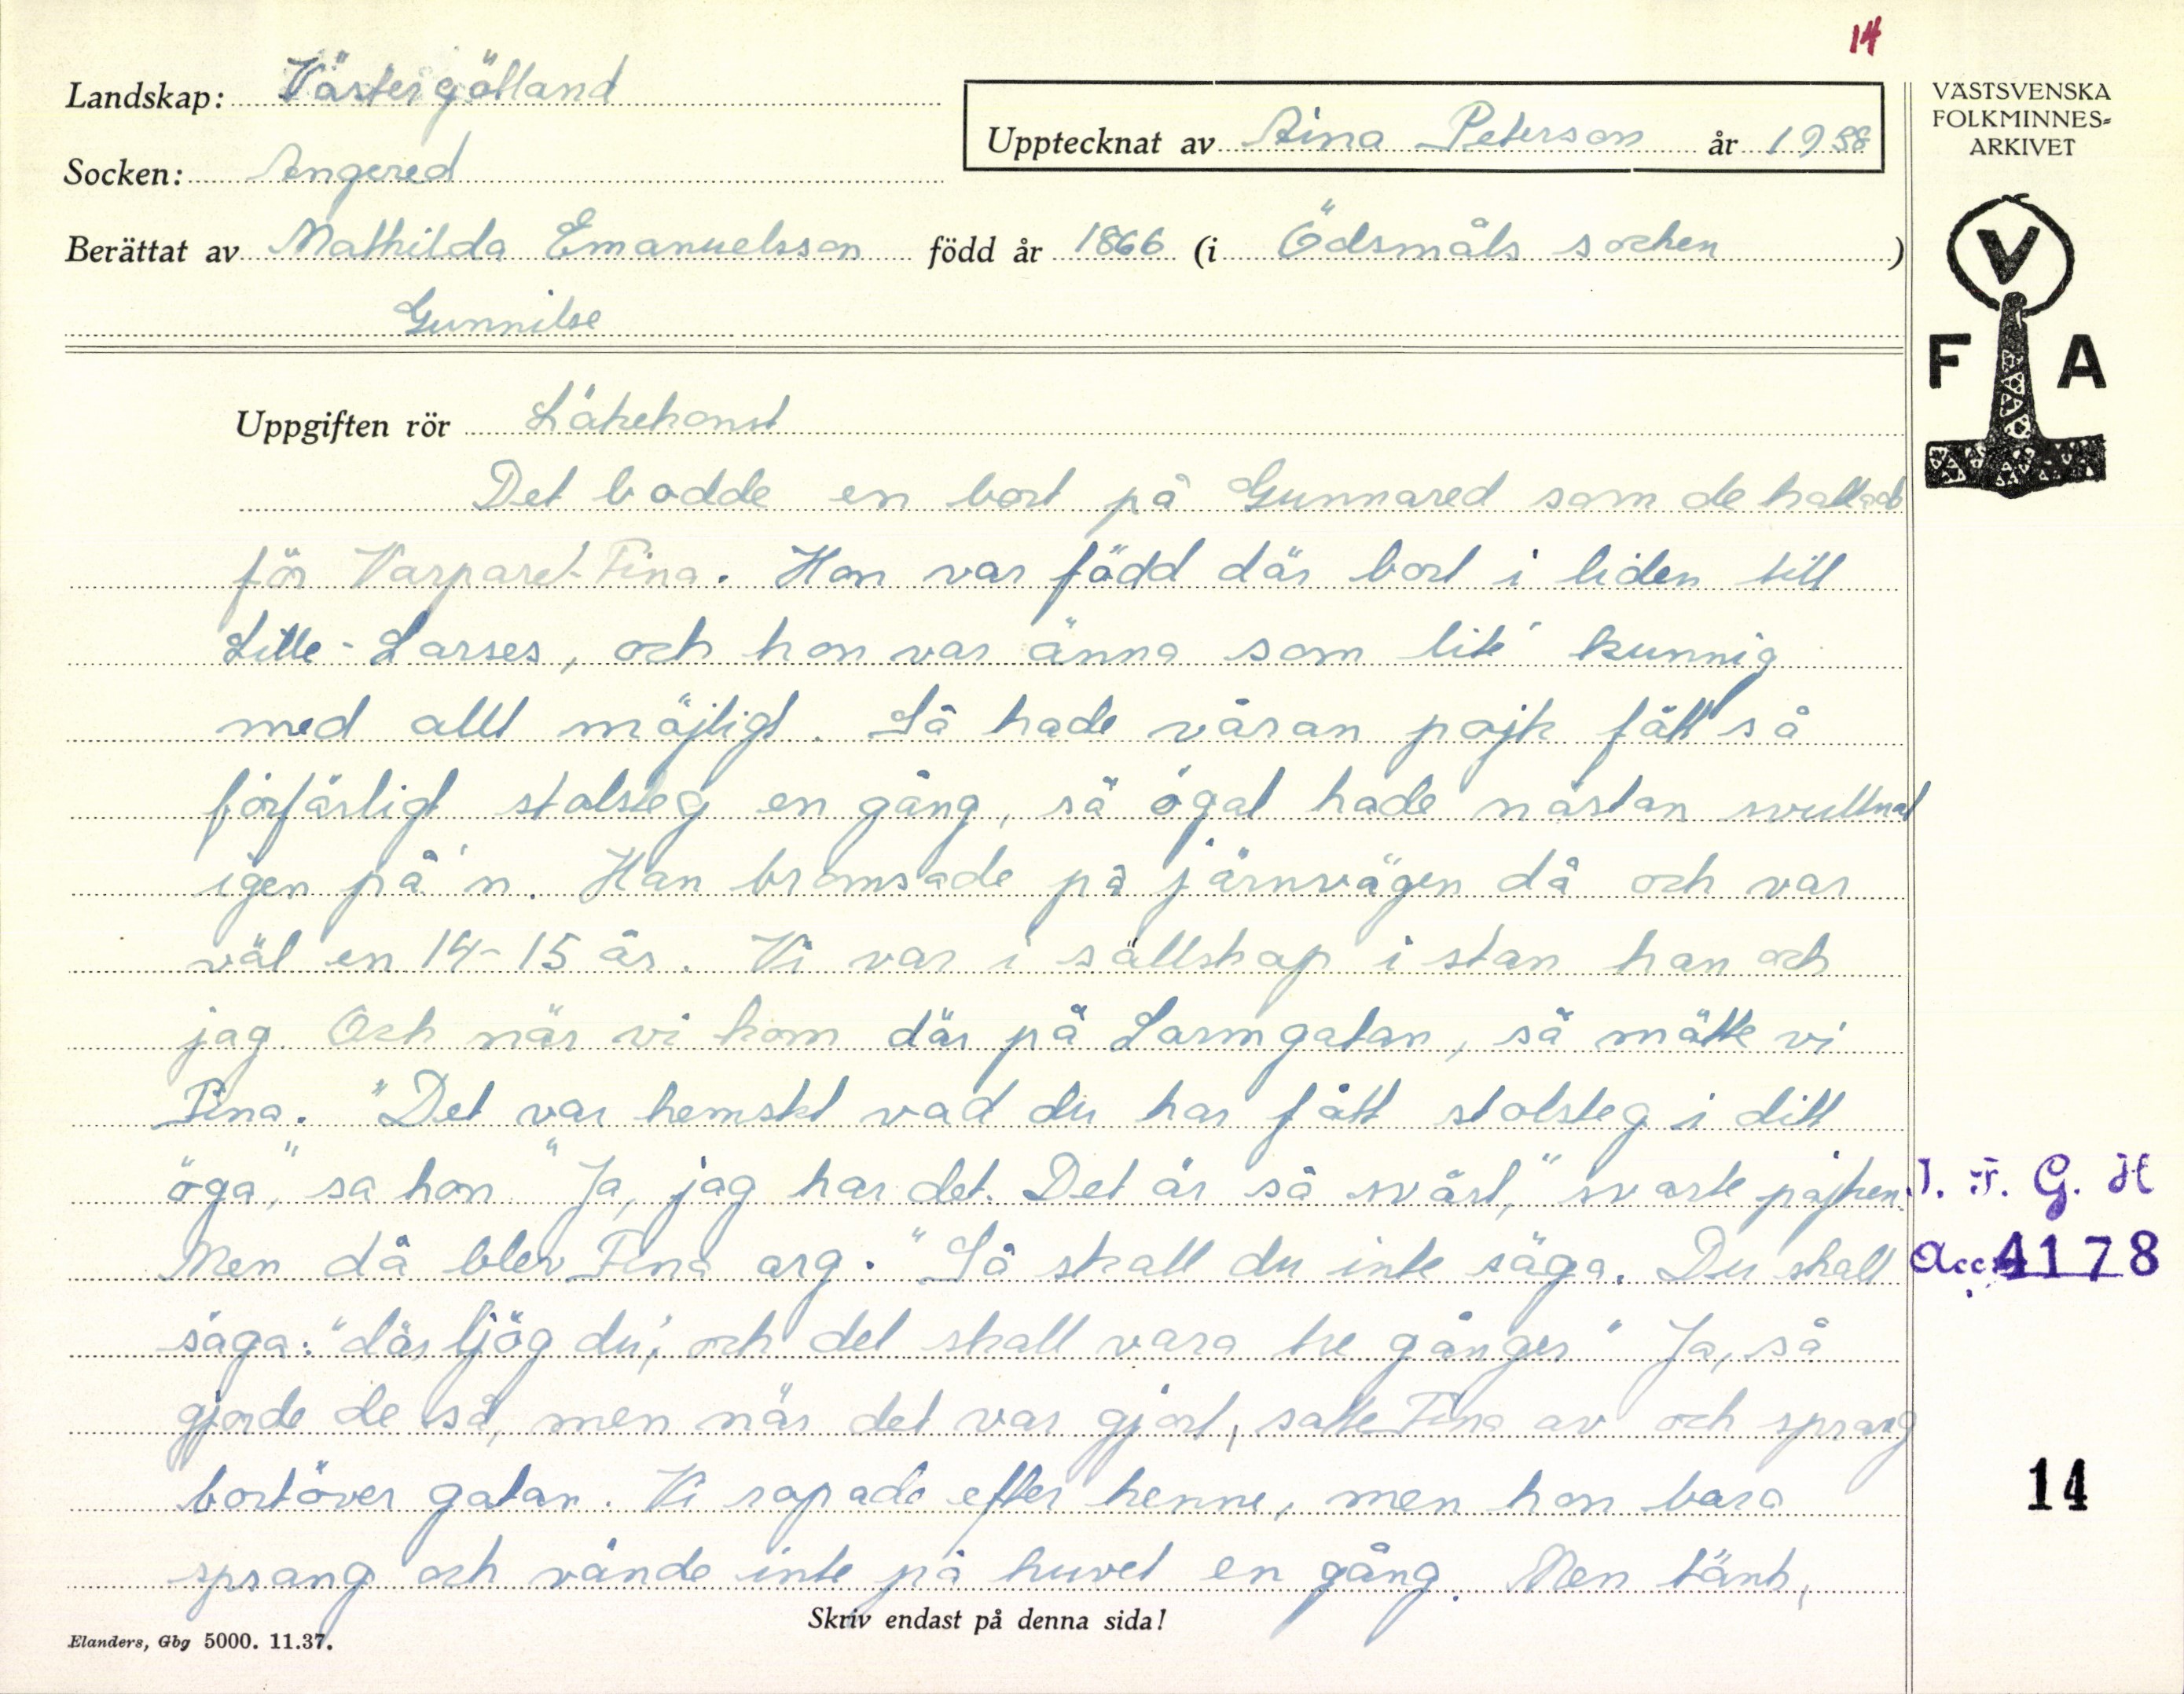 14
Landskap: Västergötland
Upptecknat av Aina Peterson år 1938
Socken: Angered
Berättat av Mathilda Emanuelsson född år 1866 (i Ödsmåls socken )
Gunnilse
VÄSTSVENSKA
FOLKMINNES-
ARKIVET
V
F A
Uppgiften rör Läkekonst
Det bodde en bort på Gunnared som de kallade
för Varparet-Fina. Hon var född där bort i liden till
Lille-Larses, och hon var änna som lite' kunnig
med allt möjligt. Så hade våran pojk fått så
förfärligt stolsteg en gång, så ögat hade nästan svullnat
igen på'n. Han bromsade på järnvägen då och var
väl en 14-15 år. Vi var i sällskap i stan han och
jag. Och när vi kom där på Larmgatan, så mötte vi
Fina. "Det var hemskt vad du har fått stolsteg i ditt
öga", sa hon "Ja, jag har det. Det är så svårt," svarte pojken.
Men då blev Fina arg. "Så skall du inte säga. Du skall
säga: "där ljög du', och det skall vara tre gånger" Ja, så
gjorde de så, men när det var gjort, satte Fina av och sprang
bortöver gatan. Vi ropade efter henne, men hon bara
sprang och vände inte på huvet en gång. Men tänk,
I. F. G. H
Acc. 4178
14
Skriv endast på denna sida!
Elanders, Gbg 5000. 11.37.